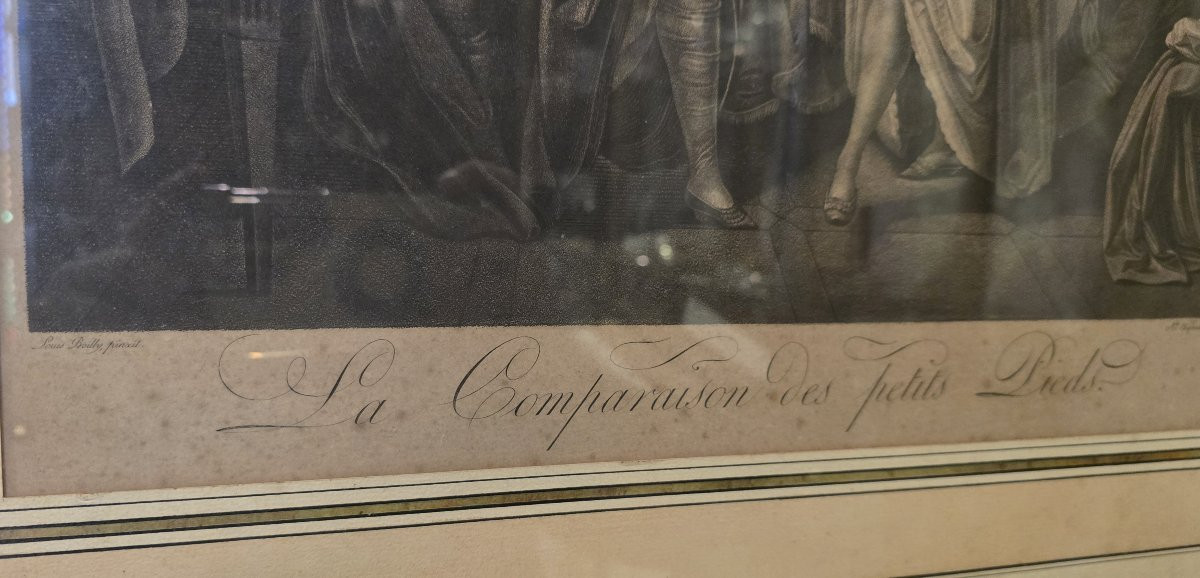 Louis Boilly pinxit.
La Comparaison des petits Pieds.